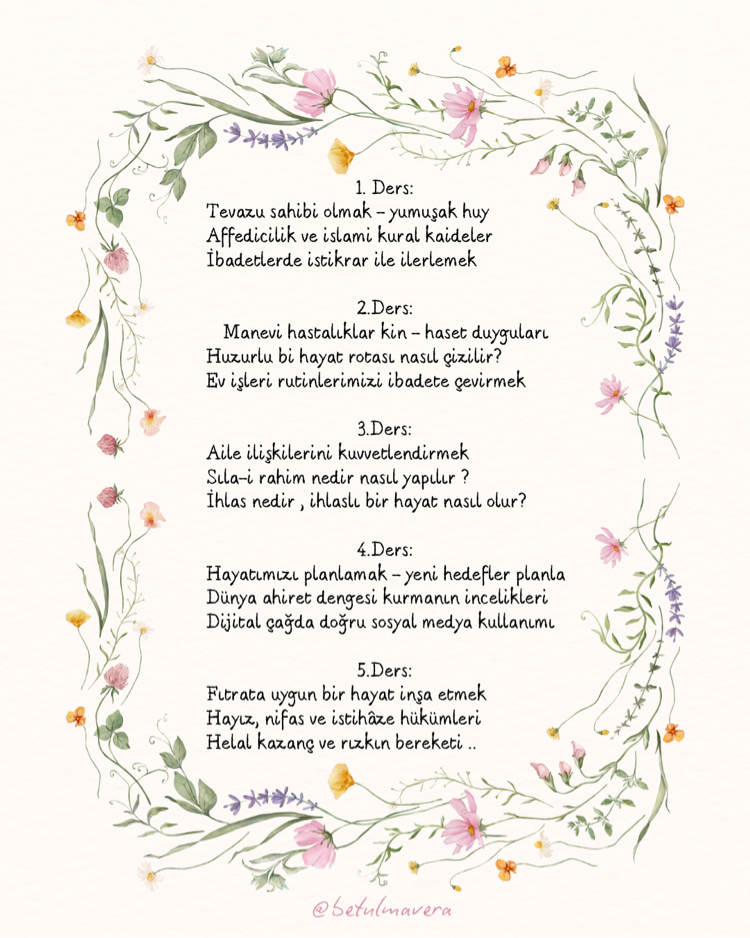 1. Ders:
Tevazu sahibi olmak – yumuşak huy
Affedicilik ve islami kural kaideler
İbadetlerde istikrar ile ilerlemek
2.Ders:
Manevi hastalıklar kin – haset duyguları
Huzurlu bi hayat rotası nasıl çizilir?
Ev işleri rutinlerimizi ibadete çevirmek
3.Ders:
Aile ilişkilerini kuvvetlendirmek
Sıla-i rahim nedir nasıl yapılır ?
İhlas nedir , ihlaslı bir hayat nasıl olur?
4.Ders:
Hayatımızı planlamak – yeni hedefler planla
Dünya ahiret dengesi kurmanın incelikleri
Dijital çağda doğru sosyal medya kullanımı
5.Ders:
Fıtrata uygun bir hayat inşa etmek
Hayız, nifas ve istihâze hükümleri
Helal kazanç ve rızkın bereketi ..
@betulmavera